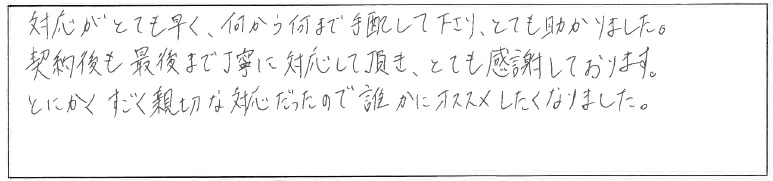 対応がとても早く、何から何まで手配して下さり、とても助かりました。
契約後も最後まで丁寧に対応して頂き、とても感謝しております。
とにかくすごく親切な対応だったので誰かにオススメしたくなりました。